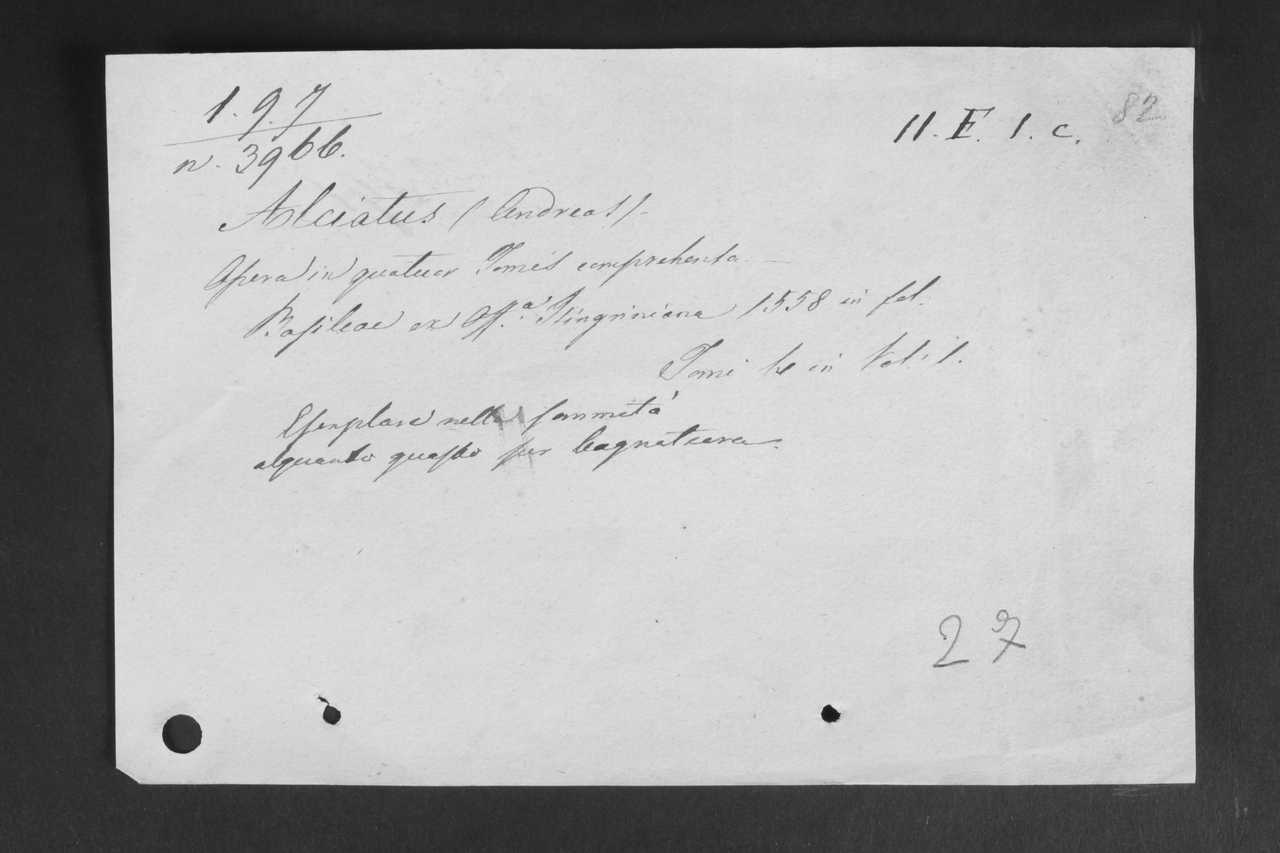 1. 9. 7
n. 3966.
11. F. 1. c.
82
Alciatus (Andreas).
Opera in quatuor Tomis comprehensa.
Basileae ex Off.a 1558 in fol.
Tomi in Vol. 1.
Esemplare nella sommità
alquanto guasto per bagnatura.
27